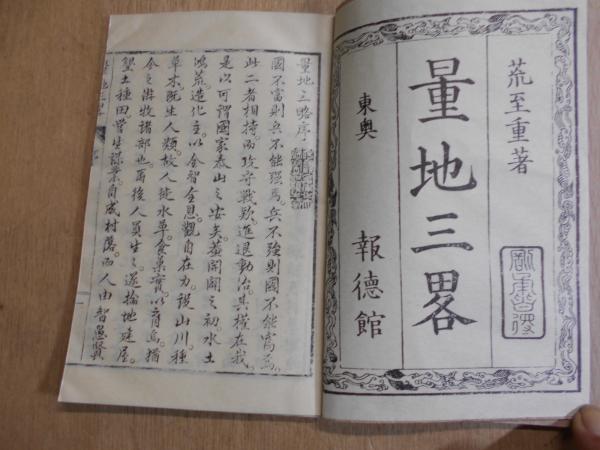 荒至重著
量地三畧
東奥　報德館
量地三略序
國不富則兵不能強焉。兵不強則國不能富焉。
此二者相持而攻守戰歟。進退動治。其權在我。
是以可謂國家泰山之安矣。蓋開闢之初。水土
鴻荒造化主。以全智全恩。觀自在力。設山川。種
草木。既生人類。故人徙水草。食菓實以育焉。猶
今之游牧諸部也。爾後人員生之。遂掄地造屋。
墾土種田。營生謀業。自成村落。而人由智愚賢